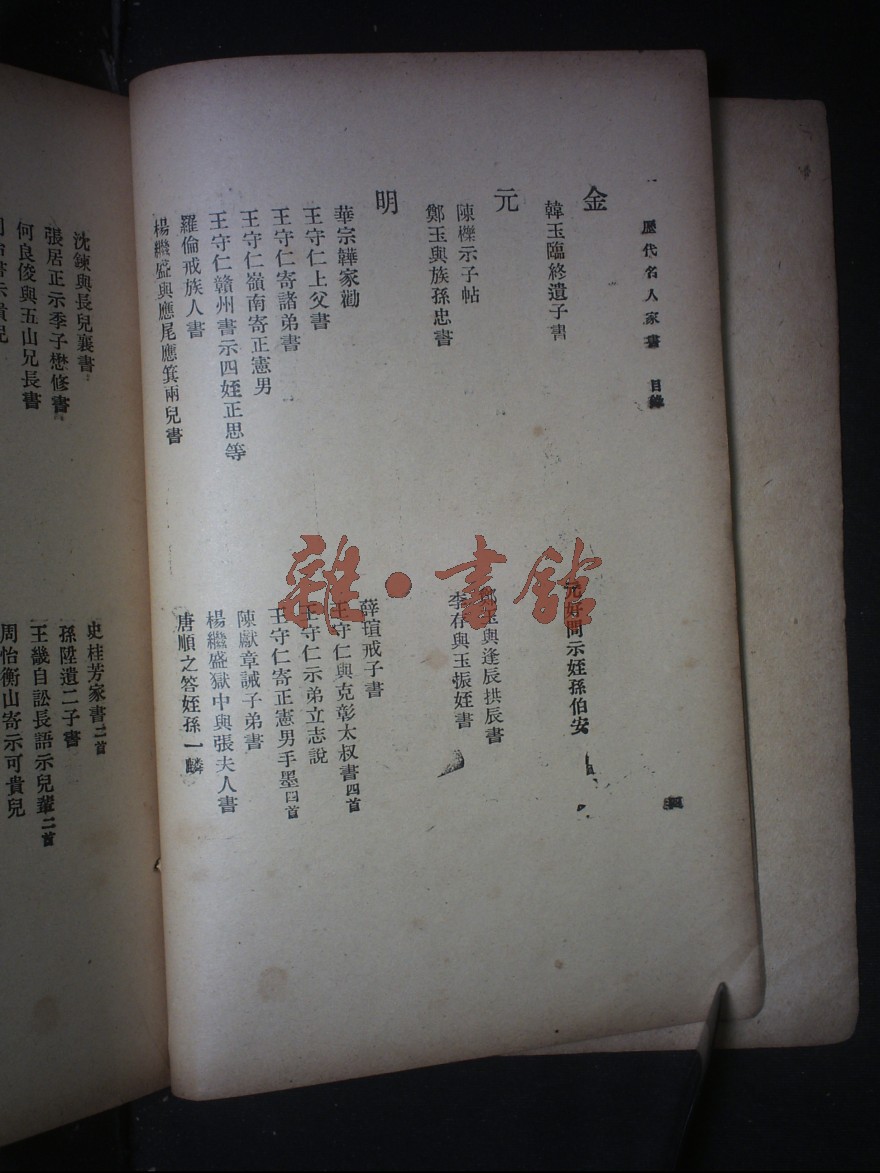 歷代名人家書 目錄
金
韓玉臨終遺子書
元好問示姪孫伯安
元
陳櫟示子帖
鄭玉與逢辰拱辰書
鄭玉與族孫忠書
李存與玉振姪書
明
薛瑄戒子書
華宗韡家勸
王守仁與克彰太叔書四首
王守仁上父書
王守仁示弟立志說
王守仁寄諸弟書
王守仁寄正憲男手墨四首
王守仁嶺南寄正憲男
陳獻章誡子弟書
王守仁贛州書示四姪正思等
楊繼盛獄中與張夫人書
羅倫戒族人書
唐順之答姪孫一麟
楊繼盛與應尾應箕兩兒書
史桂芳家書二首
沈鍊與長兒襄書
孫陞遺二子書
張居正示季子懋修書
王畿自訟長語示兒輩二首
何良俊與五山兄長書
周怡衡山寄示可貴兒
書示貴兒
雜·書館